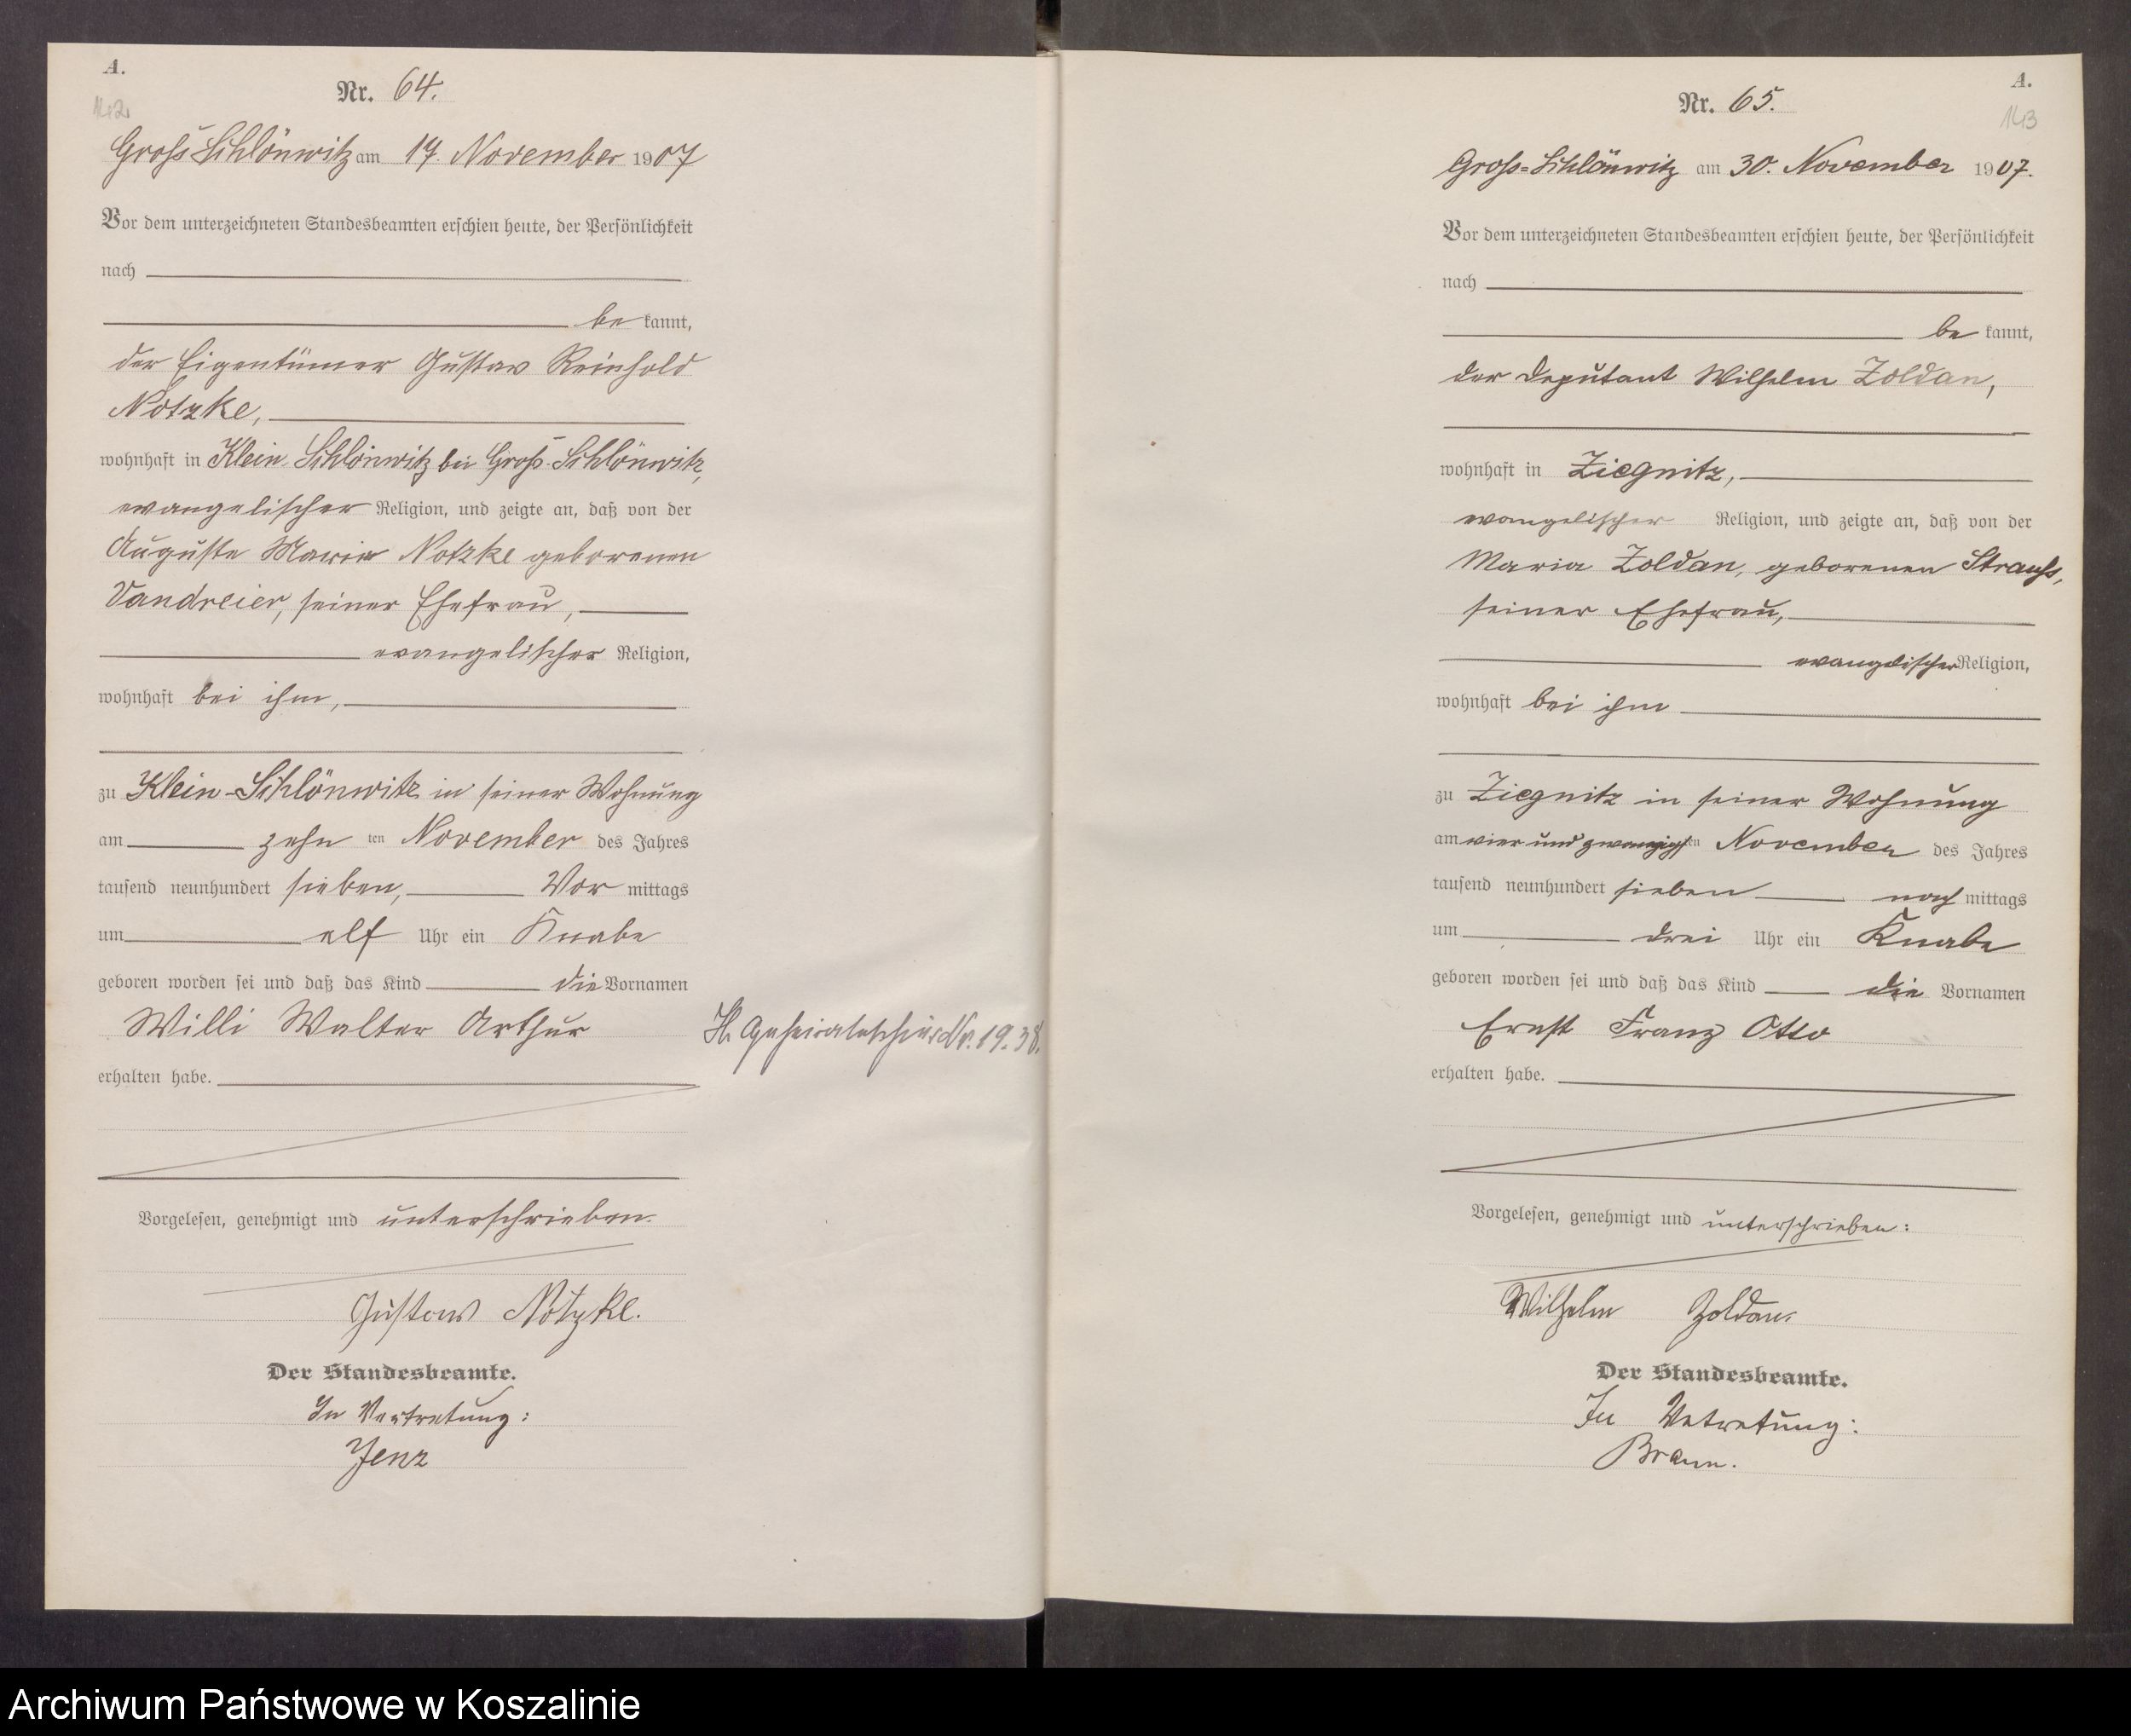 A.
142
Nr. 64.
Groß Schlönwitz am 17. November 1907
Vor dem unterzeichneten Standesbeamten erschien heute, der Persönlichkeit
nach
be kannt,
der Eigentümer Gustav Reinhold
Notzke,
wohnhaft in Klein Schlönwitz bei Groß-Schlönwitz,
evangelischer Religion, und zeigte an, daß von der
Auguste Marie Notzke geborenen
Vandreier, seiner Ehefrau,
evangelischer Religion,
wohnhaft bei ihm,
zu Klein-Schlönwitz in seiner Wohnung
am zehn ten November des Jahres
tausend neunhundert sieben, Vor mittags
um elf Uhr ein Knabe
geboren worden sei und daß das Kind die Vornamen
Willi Walter Arthur
erhalten habe.
Vorgelesen, genehmigt und unterschrieben.
Gustav Notzke.
Der Standesbeamte.
In Vertretung:
Jenz
Nr. 19.38.
A.
143
Nr. 65.
Groß-Schlönwitz am 30. November 1907.
Vor dem unterzeichneten Standesbeamten erschien heute, der Persönlichkeit
nach
be kannt,
der Deputant Wilhelm Zoldan,
wohnhaft in Ziegnitz,
evangelischer Religion, und zeigte an, daß von der
Maria Zoldan, geborenen Strauß,
seiner Ehefrau,
evangelischer Religion,
wohnhaft bei ihm
zu Ziegnitz in seiner Wohnung
am vier und zwanzigsten November des Jahres
tausend neunhundert sieben nach mittags
um drei Uhr ein Knabe
geboren worden sei und daß das Kind die Vornamen
Ernst Franz Otto
erhalten habe.
Vorgelesen, genehmigt und unterschrieben:
Wilhelm Zoldan.
Der Standesbeamte.
In Vetretung:
Braun.
Archiwum Państwowe w Koszalinie